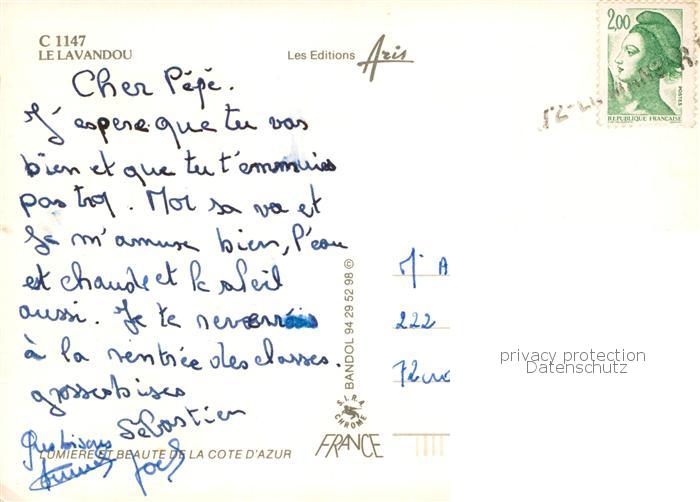 C 1147
LE LAVANDOU
Les Editions Aris
2,00
POSTES
REPUBLIQUE FRANÇAISE
Cher Pépé.
J'espere que tu vas
bien et que tu t'emmuies
pas trop. Moi sa va et
Je m'amuse bien, l'eau
est chaude et le soleil
aussi. Je te reverrais
à la rentrée des classes.
grosses bises
Sébastien
Gros bisous
Joel
M. A
222
72
BANDOL 94 29 52 98 ©
S.I.R.A.
CHROME
FRANCE
LUMIERE ET BEAUTE DE LA COTE D'AZUR
privacy protection
Datenschutz